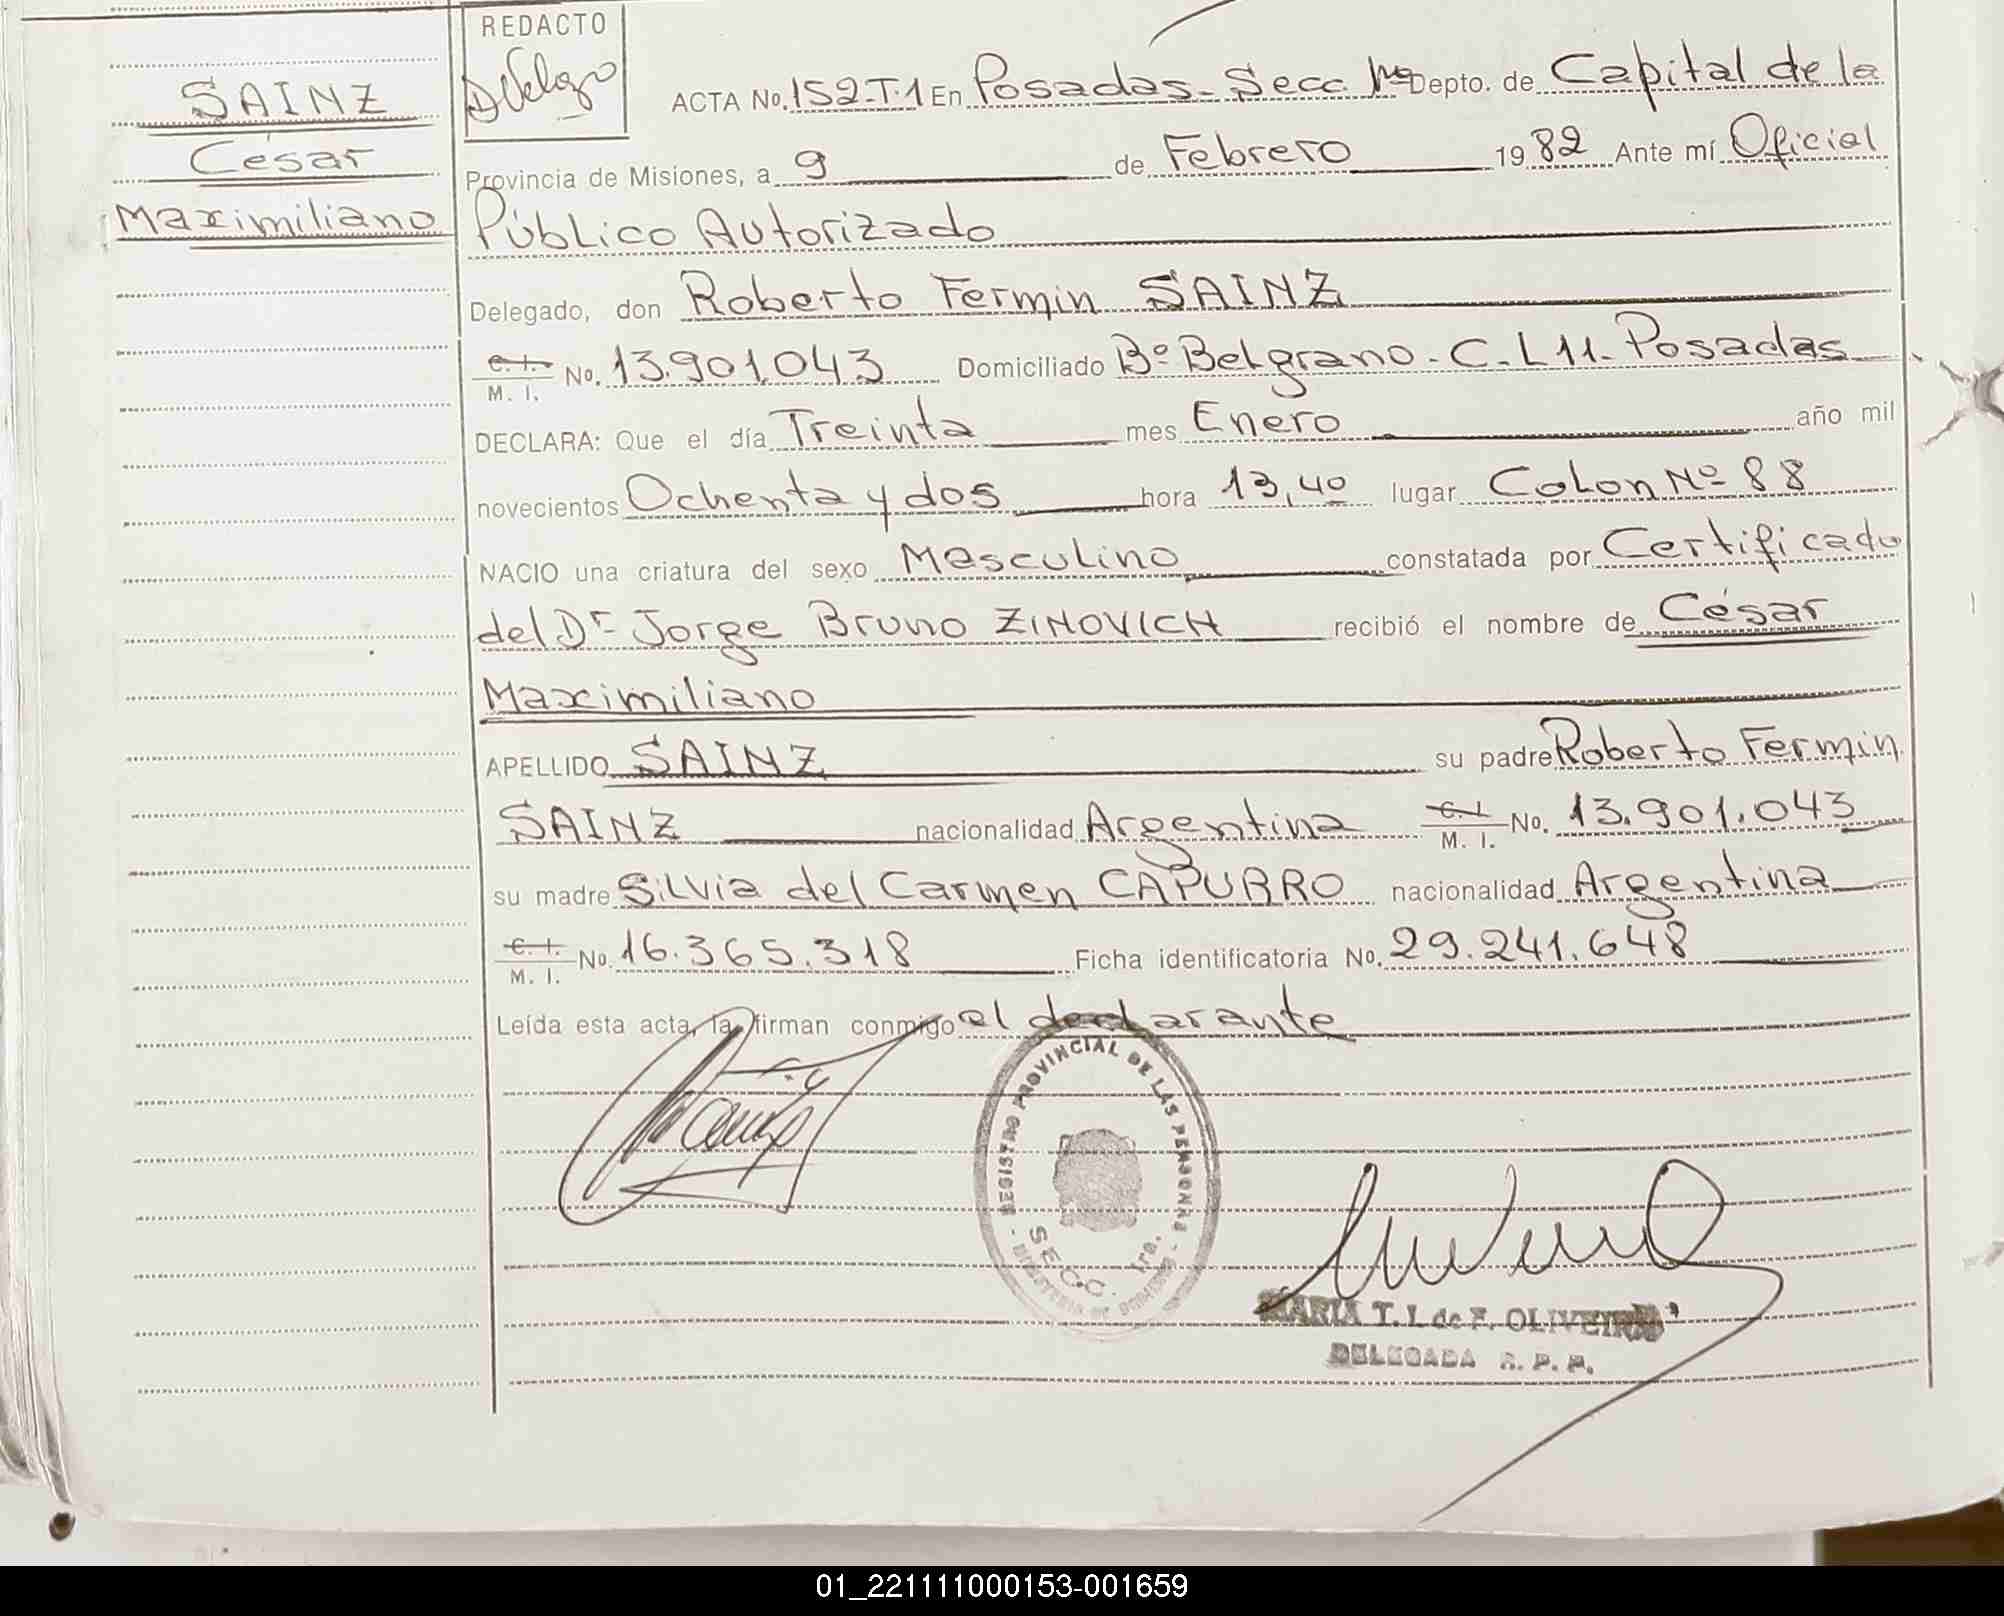 REDACTO
SAINZ
César
Maximiliano
ACTA No. 152-T.1 En Posadas - Secc. 1ra Depto. de Capital de la
Provincia de Misiones, a 9 de Febrero 1982 Ante mí Oficial
Público Autorizado
Delegado, don Roberto Fermin SAINZ
C. I. M. I. No. 13.901.043 Domiciliado Bº Belgrano - C.L11 - Posadas
DECLARA: Que el día Treinta mes Enero año mil
novecientos Ochenta y dos hora 13,40 lugar Colon Nº 88
NACIO una criatura del sexo Masculino constatada por Certificado
del Dr Jorge Bruno ZINOVICH recibió el nombre de César
Maximiliano
APELLIDO SAINZ su padre Roberto Fermin
SAINZ nacionalidad Argentina C. I. M. I. No. 13.901.043
su madre Silvia del Carmen CAPURRO nacionalidad Argentina
C. I. M. I. No. 16.365.318 Ficha identificatoria No. 29.241.648
Leída esta acta, la firman conmigo el declarante
REGISTRO PROVINCIAL DE LAS PERSONAS
SECC. 1ra.
MARIA T. I. de F. OLIVEIRA
DELEGADA R. P. P.
01_221111000153-001659